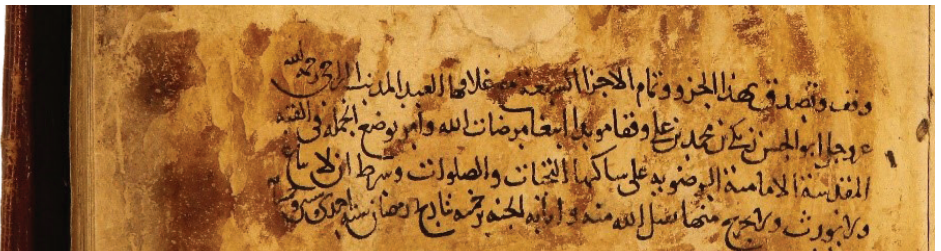 وقف وتصدق بهذا الجزو وتمام الاجزا السبعة مع غلافها العبد المذنب الراجي رحمة الله
عز وجل ابو الحسن بن محمد بن علي وقفا موبدا ابتغا مرضات الله وامر بوضع الجملة في القبة
المقدسة الامامية الرضوية على ساكنها التحيات والصلوات وشرط ان لا يباع
ولا يورث ولا يخرج منها تقبل الله منه واثابه الجنة برحمته تاريخ رمضان سنة